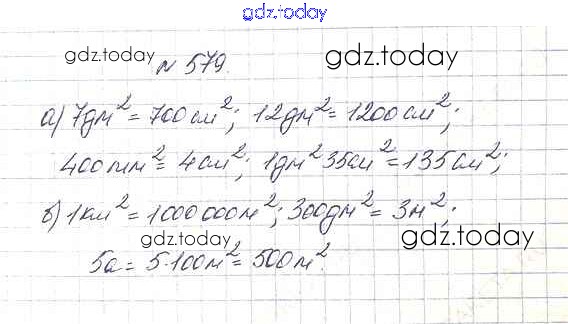 gdz.today
gdz.today № 579. gdz.today
а) 7дм² = 700 см²; 12дм² = 1200 см²;
400мм² = 4см²; 1дм² 35см² = 135 см²;
б) 1км² = 1000 000м²; 300дм² = 3м²;
gdz.today gdz.today
5а = 5·100м² = 500м².